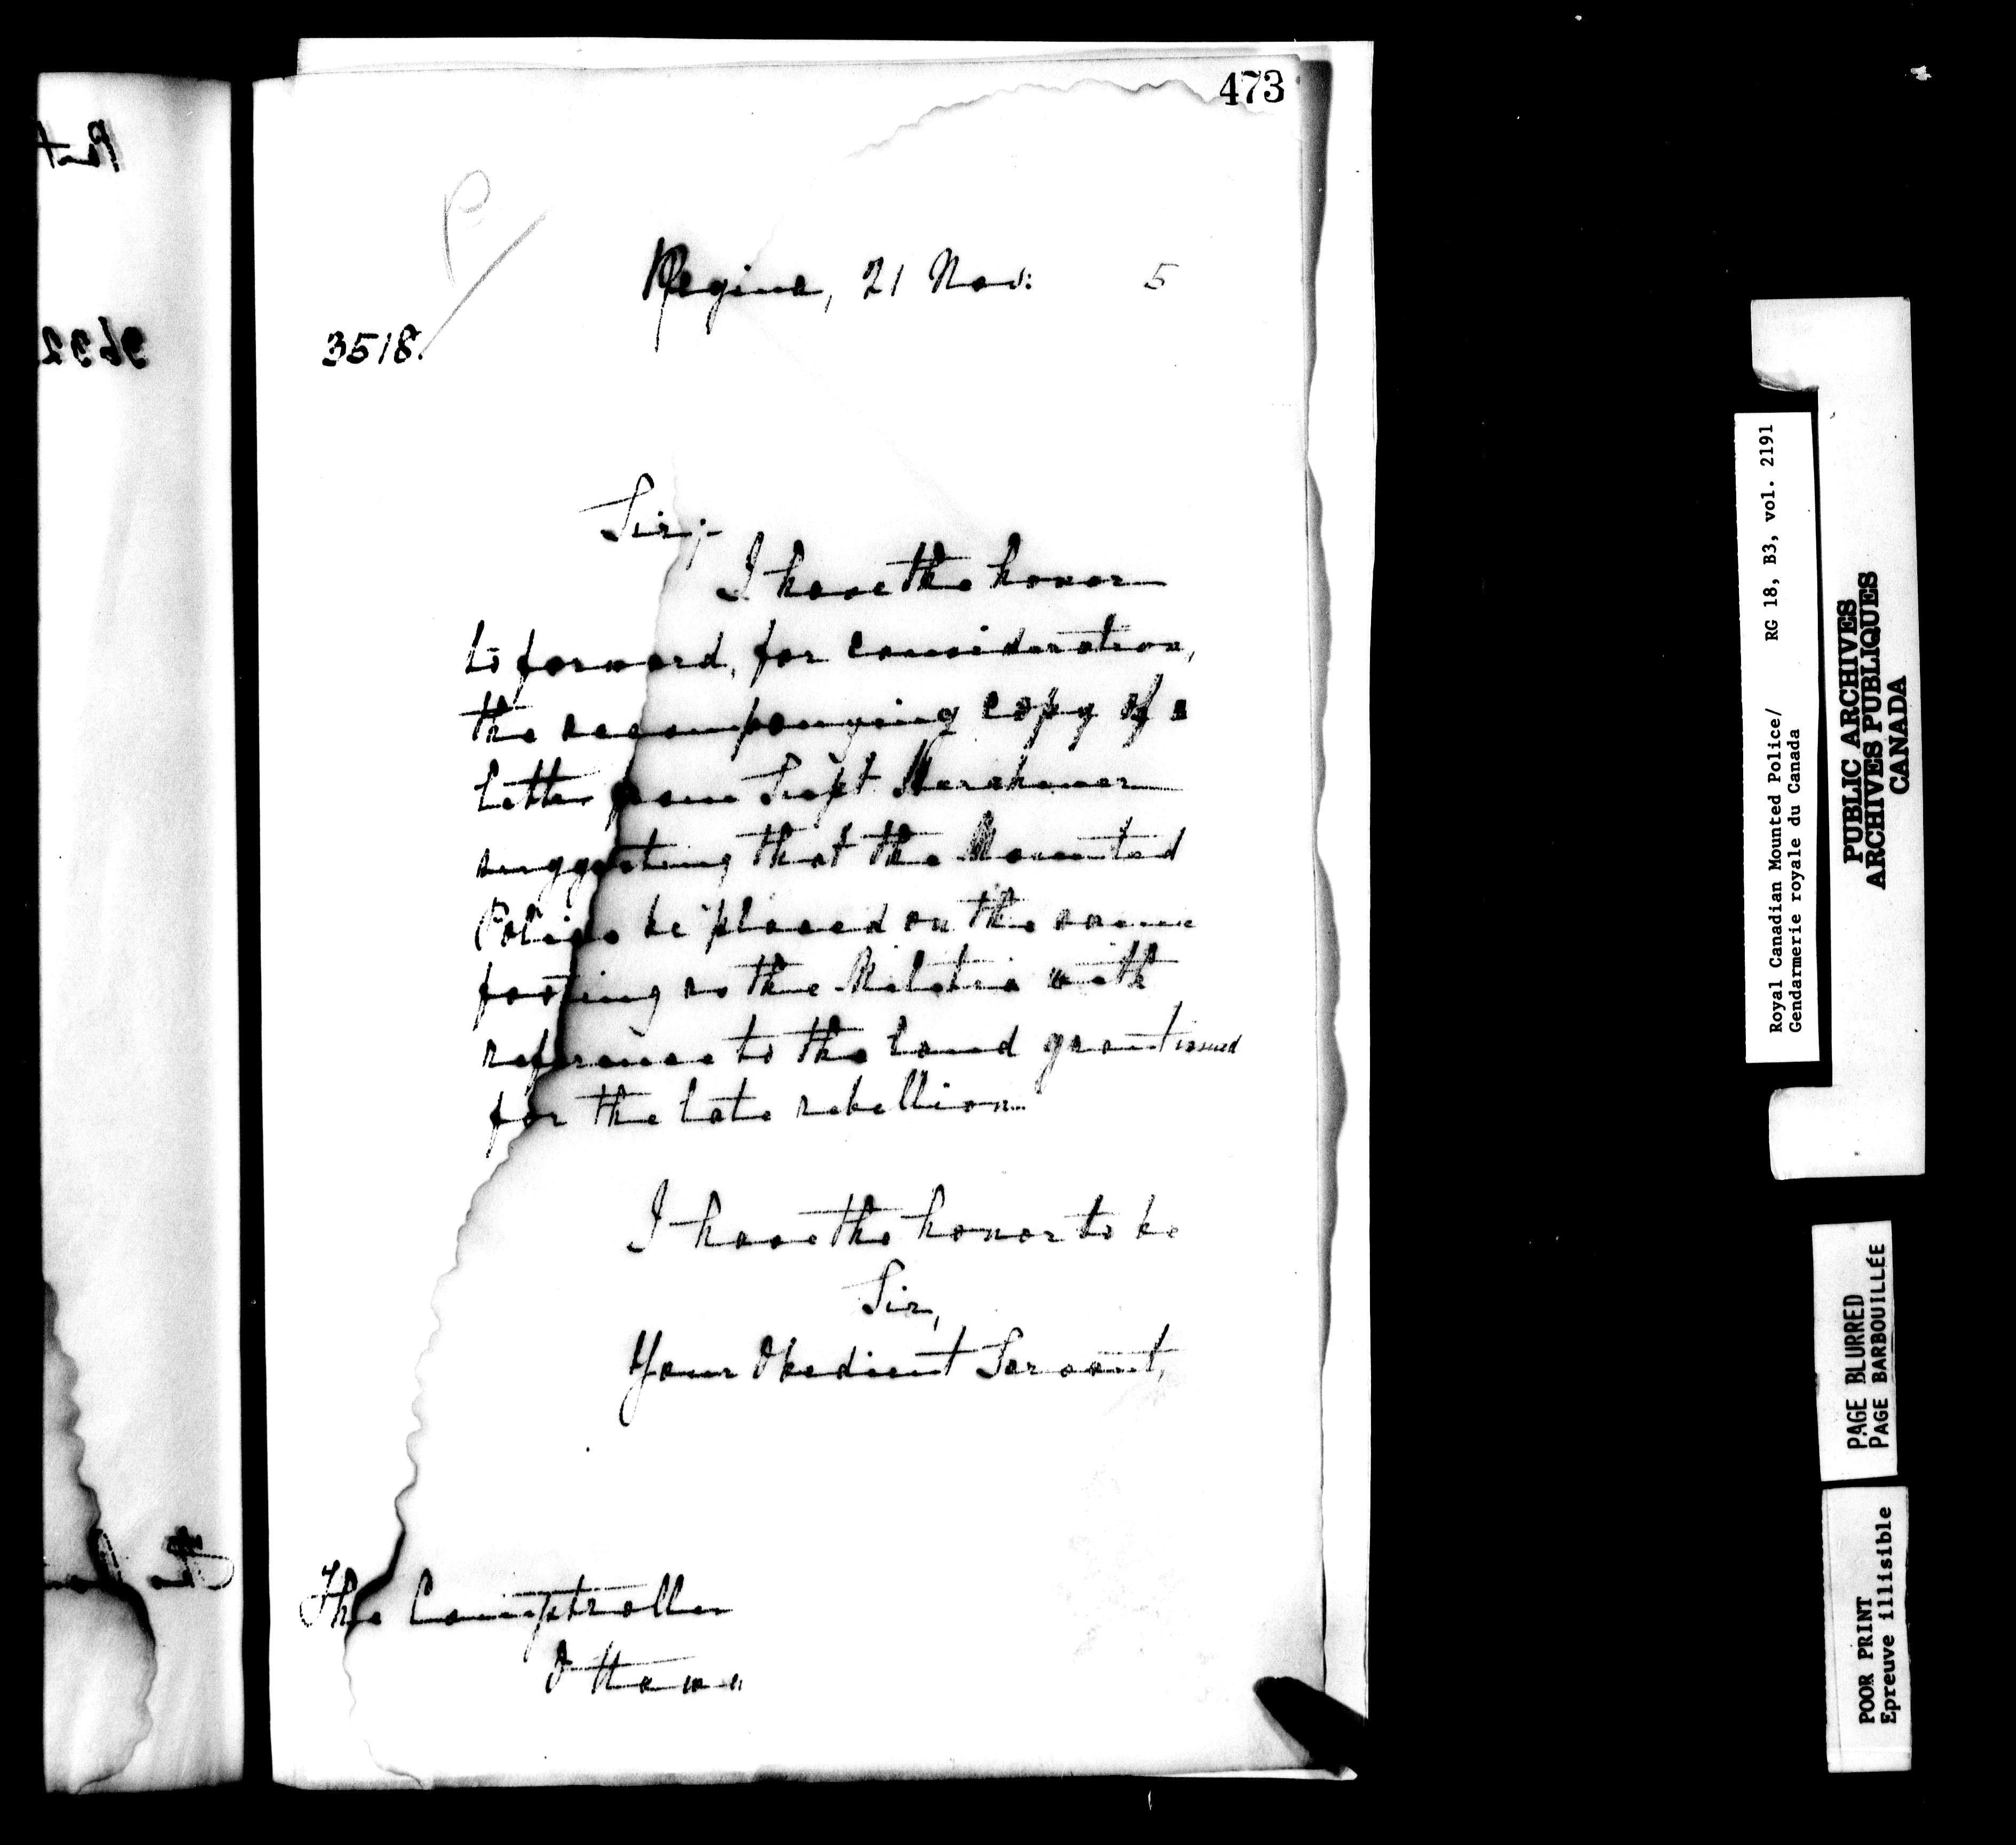 473
P
Regina, 21 Nov: 5
3518.
Sir;
I have the honor
to forward, for consideration,
the accompanying copy of a
letter from Supt Herchmer
suggesting that the Mounted
Police be placed on the same
footing as the Militia with
reference to the land grant issued
for the late rebellion.
I have the honor to be
Sir,
Your Obedient Servant,
The Comptroller
Ottawa
Royal Canadian Mounted Police/ RG 18, B3, vol. 2191
Gendarmerie royale du Canada
PUBLIC ARCHIVES
ARCHIVES PUBLIQUES
CANADA
PAGE BLURRED
PAGE BARBOUILLÉE
POOR PRINT
Epreuve illisible